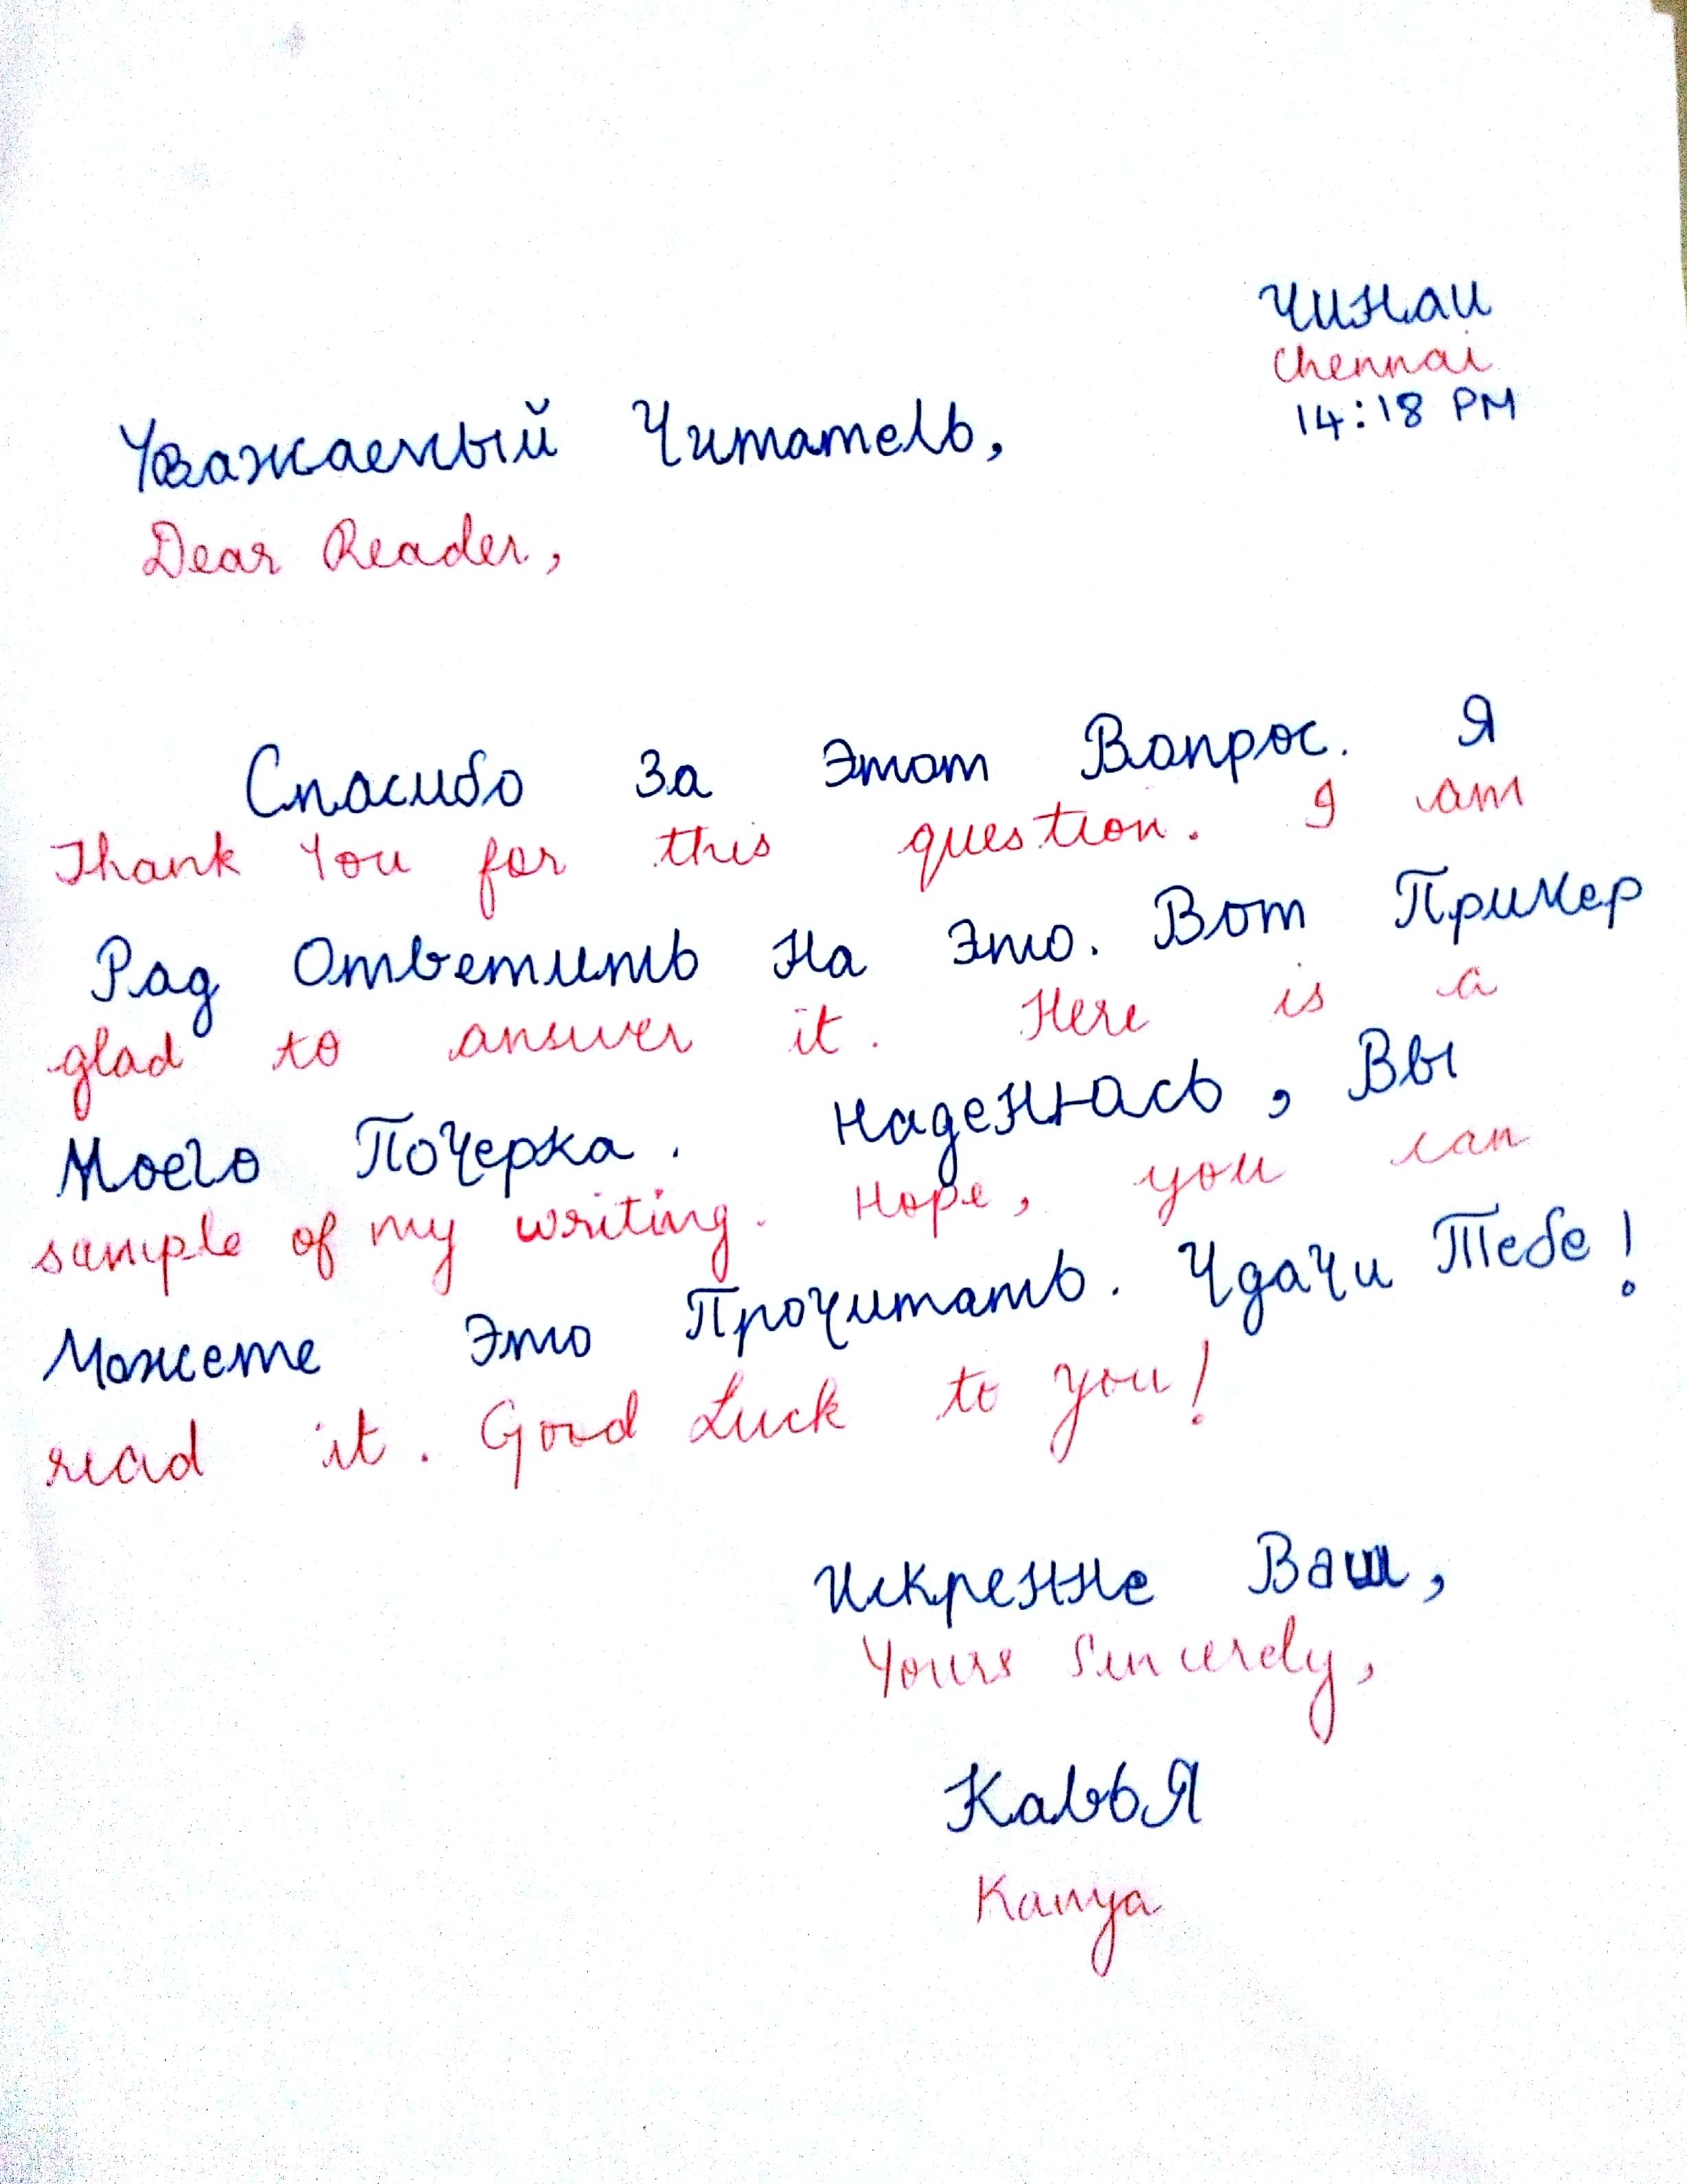 Чинаи
Chennai
14:18 PM
Уважаемый Читатель,
Dear Reader,
Спасибо За Этот Вопрос. Я
Thank You for this question. I am
Рад Ответить На Это. Вот Пример
glad to answer it. Here is a
Моего Почерка. Наденнась, Вы
sample of my writing. Hope, you can
Можете Это Прочитать. Чдачи Тебе!
read it. Good Luck to you!
Искренне Ваш,
Yours Sincerely,
КаввЯ
Kavya